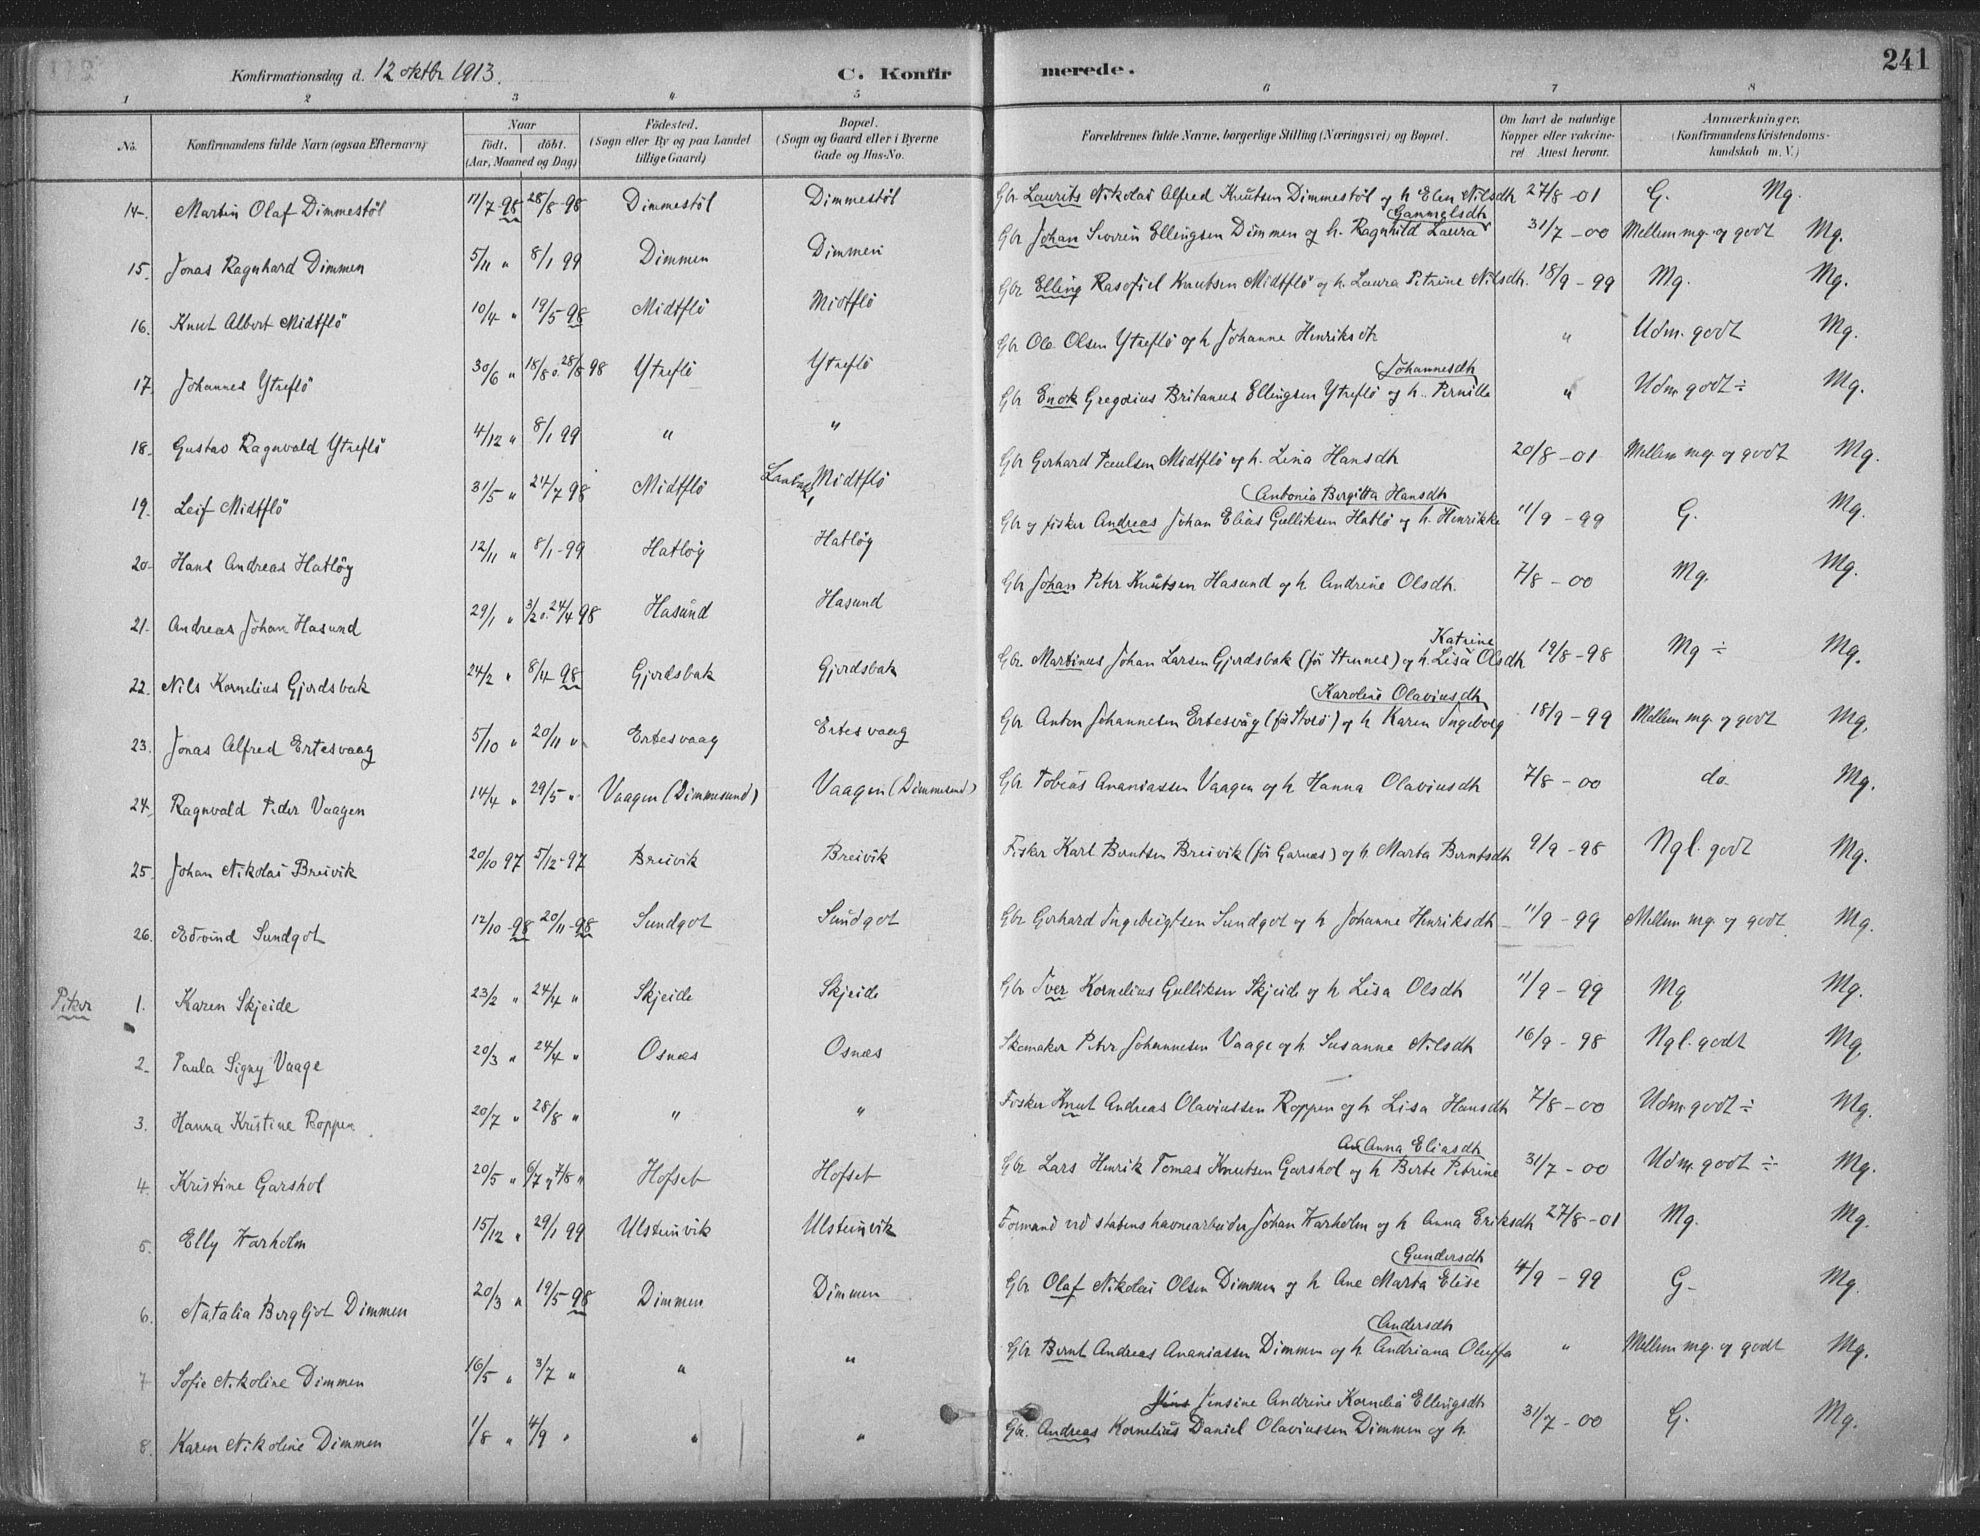 Konfirmationsdag d. 12 oktbr 1913. C. Konfir merede. 241
1 2 3 4 5 6 7 8
No. Konfirmandens fulde Navn (ogsaa Efternavn) Naar födt. döbt. (Aar, Maaned og Dag) Födested. (Sogn eller By og paa Landet tillige Gaard) Bopæl. (Sogn og Gaard eller i Byerne Gade og Hus-No. Forældrenes fulde Navne, borgerlige Stilling (Næringsvei) og Bopæl. Om havt de naturlige Kopper eller vakcineret Attest herom. Anmærkninger. (Konfirmandens Kristendomskundskab m. V.)
14. Martin Olaf Dimmestöl 11/7-98 28/8-98 Dimmestöl Dimmestöl Gbr Laurits Nikolai Alfred Knutsen Dimmestöl og h Elen Nilsdh 27/8-01 G. Mg.
15. Jonas Ragnhard Dimmen 5/11 " 8/1 99 Dimmen Dimmen Gbr Johan Severin Ellingsen Dimmen og h. Ragnhild Laura Gammelsdh 31/7-00 Mellem mg. og godt Mg.
16. Knut Albert Midtflö 10/4 " 19/5-98 Midtflö Midtflö Gbr Elling Knutsen Midtflö og h. Laura Petrine Nilsdh. 18/9-99 Mg. Mg.
17. Johannes Ytreflö 30/6 " 18/8 o. 28/8 98 Ytreflö Ytreflö Gbr Ole Olsen Ytreflö og h Johanne Henriksdh " Udm. godt Mg.
18. Gustav Ragnvald Ytreflö 4/12 " 8/1 99 " " Gbr Enok Gregorius Britanus Ellingsen Ytreflö og h. Pernille Johannesdh " Udm. godt ÷ Mg.
19. Leif Midtflö 31/5 " 24/7 98 Midtflö Midtflö Gbr Gerhard Paulsen Midtflö og h. Lina Hansdh 20/8-01 Mellem mg. og godt Mg.
20. Hans Andreas Hatlöy 12/11 " 8/1-99 Hatlöy Hatlöy Gbr og fisker Andreas Johan Elias Gulliksen Hatlö og h. Henrikke Antonia Bergitta Hansdh 11/9-99 G. Mg.
21. Andreas Johan Hasund 29/1 " 3/2 o. 24/4 98 Hasund Hasund Gbr Johan Peter Knutsen Hasund og h. Andrine Olsdh. 7/8-00 Mg. Mg.
22. Nils Kornelius Gjerdsbak 24/2 " 8/4 98 Gjerdsbak Gjerdsbak Gbr. Martinus Johan Larsen Gjerdsbak (för Stennes) og h. Lisa Katrine Olsdh 19/8-98 Mg ÷ Mg.
23. Jonas Alfred Ertesvaag 5/10 " 20/11 " Ertesvaag Ertesvaag Gbr Anton Johannesen Ertesvåg (för Storö) og h Karen Ingeborg Karoline Olaviusdh 18/9-99 Mellem mg. og godt Mg.
24. Ragnvald Peder Vaagen 14/4 " 29/5 " Vaagen (Dimmesund) Vaagen (Dimmesund) Gbr Tobias Ananiassen Vaagen og h. Hanna Olaviusdh 7/8-00 do Mg.
25. Johan Nikolai Breivik 20/10 97 5/12-97 Breivik Breivik Fisker Karl Berntsen Breivik (för Garnæs) og h. Marta Berntsdh 9/9-98 Ngl. godt Mg.
26. Edvind Sundgot 12/10-98 20/11-98 Sundgot Sundgot Gbr Gerhard Ingebrigtsen Sundgot og h Johanne Henriksdh 11/9-99 Mellem mg. og godt Mg.
Piker 1. Karen Skjeide 23/2 " 24/4 " Skjeide Skjeide Gbr Iver Kornelius Gulliksen Skjeide og h Lisa Olsdh 11/9-99 Mg Mg.
2. Paula Signy Vaage 20/3 " 24/4 " Osnæs Osnæs Skomaker Peter Johannesen Vaage og h. Susanne Nilsdh 16/9-98 Ngl. godt Mg.
3. Hanna Kristine Roppen 20/7 " 28/8 " " " Fisker Knut Andreas Olaviussen Roppen og h Lisa Hansdh 7/8-00 Udm. godt ÷ Mg.
4. Kristine Garshol 20/5 " 6/7 o 7/8 " Hofset Hofset Gbr Lars Henrik Tomas Knutsen Garshol og h Berte Petrine Anna Eliasdh 31/7-00 Udm. godt ÷ Mg.
5. Elly Varholm 15/12 " 29/1 99 Ulsteinvik Ulsteinvik Formand ved statens havnearbeider Johan Varholm og h Anna Eriksdh 27/8-01 Mg. Mg.
6. Natalia Bergljot Dimmen 20/3 " 19/5-98 Dimmen Dimmen Gbr Olaf Nikolai Olsen Dimmen og h Ane Marta Elise Gundersdh 4/9-99 G- Mg.
7 Sofie Nikoline Dimmen 16/5 " 3/7 " " " Gbr Bernt Andreas Ananiassen Dimmen og h. Andriana Oluffa Andersdh " Mellem mg. og godt Mg.
8. Karen Nikoline Dimmen 1/8 " 4/9 " " " Gbr. Andreas Kornelius Daniel Olaviussen Dimmen og h. Jensine Andrine Kornelia Ellingsdh 31/7-00 G. Mg.